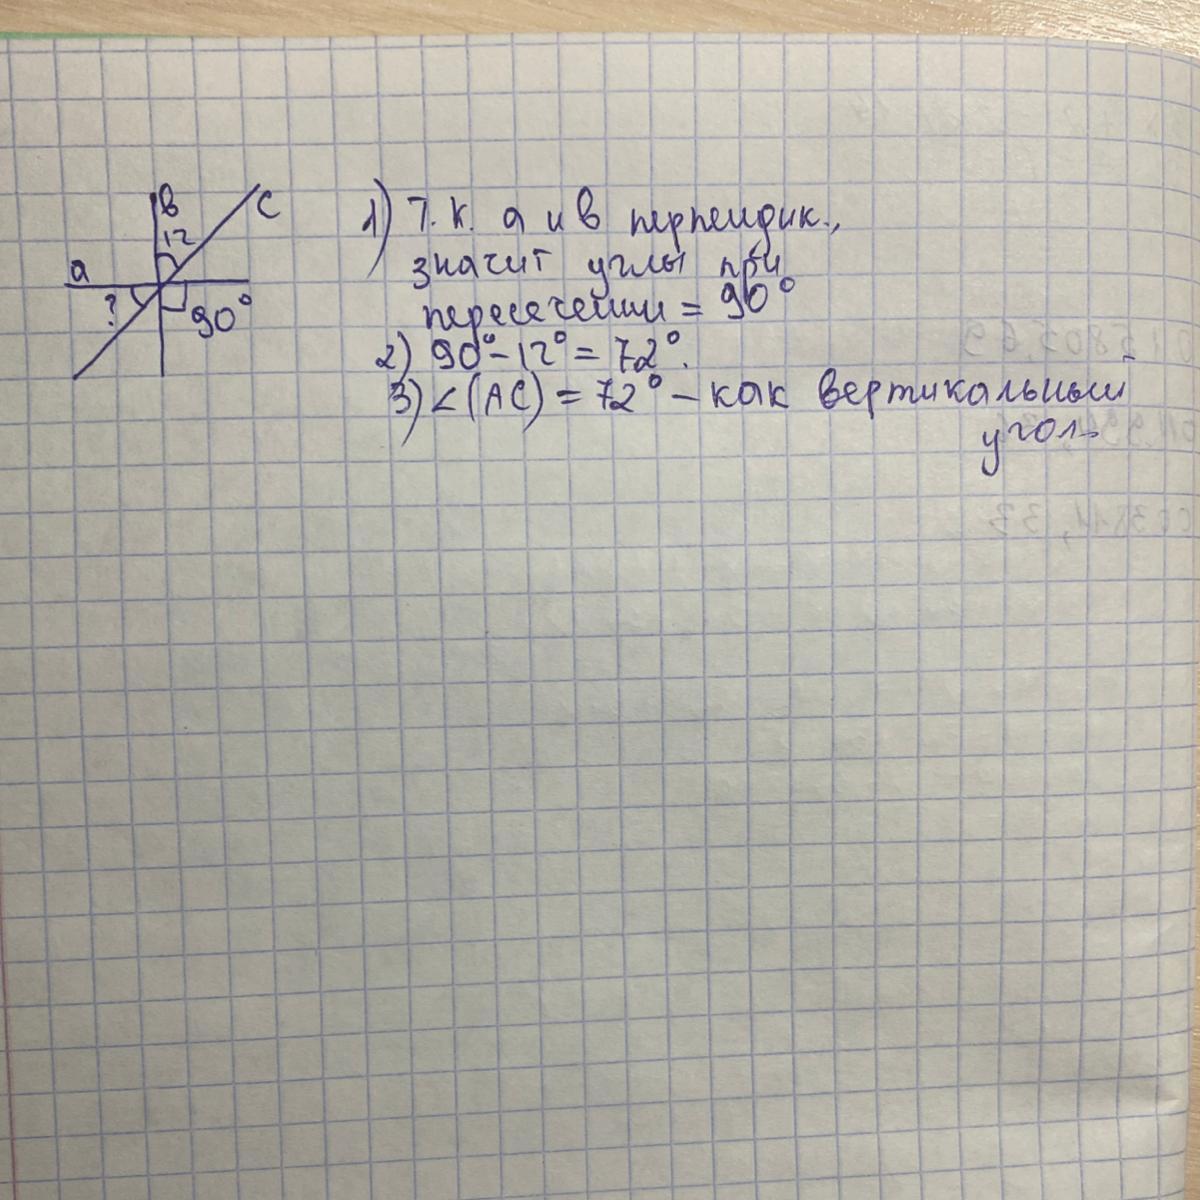 в
с
12
а
?
90°
1) Т.к. а и в перпендик.,
значит углы при
пересечении = 90°
2) 90° - 12° = 72°.
3) ∠(АС) = 72° - как вертикальный
угол.